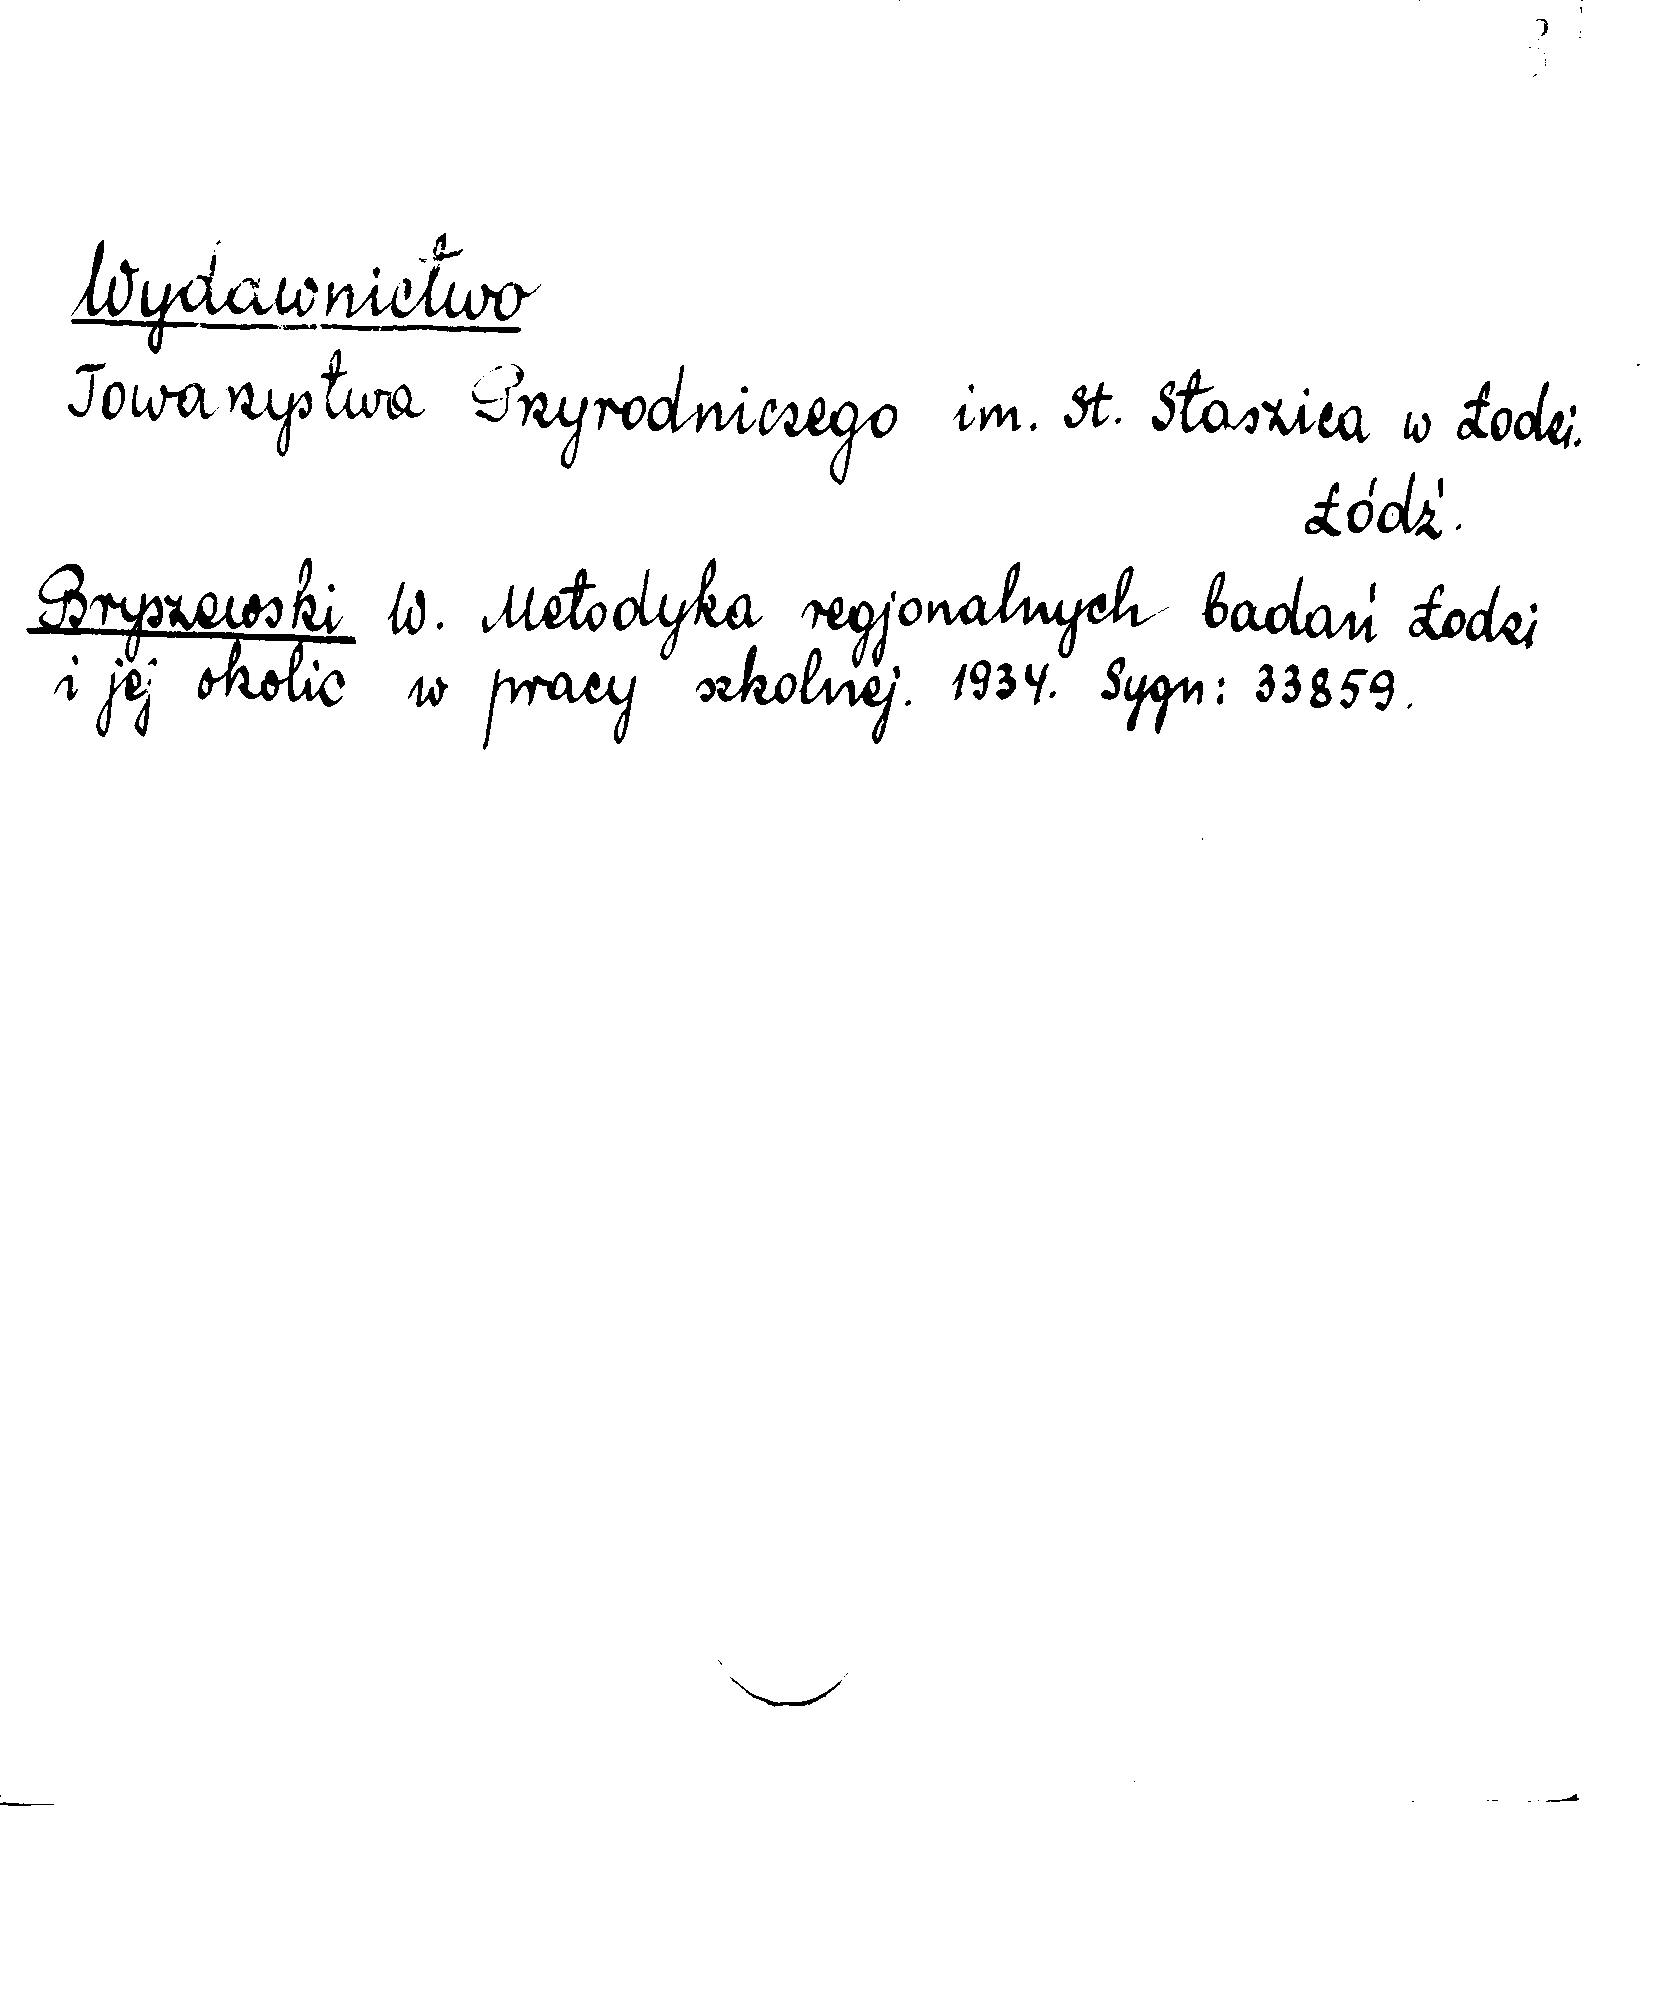 Wydawnictwo
Towarzystwa Przyrodniczego im. St. Staszica w Łodzi.
Łódź.
Bryszewski W. Metodyka regjonalnych badań Łodzi
i jej okolic w pracy szkolnej. 1934. Sygn: 33859.